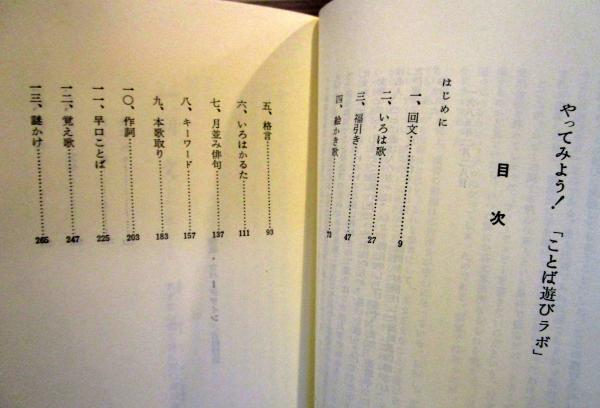 やってみよう！「ことば遊びラボ」
目次
はじめに
一、回文……9
二、いろは歌……27
三、福引き……47
四、絵かき歌……71
五、格言……93
六、いろはかるた……111
七、月並み俳句……137
八、キーワード……157
九、本歌取り……183
一〇、作詞……203
一一、早口ことば……225
一二、覚え歌……247
一三、謎かけ……265